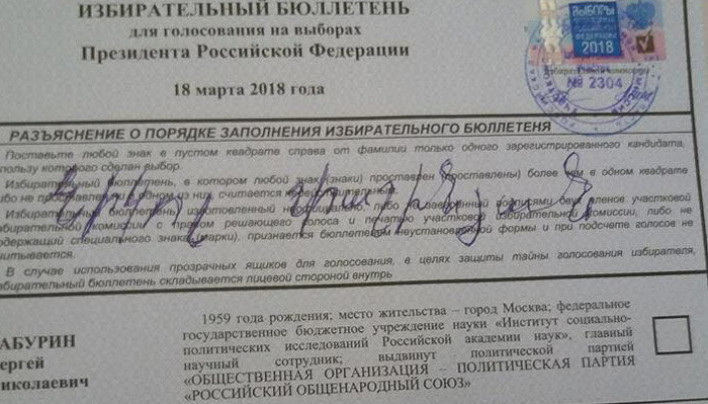 ИЗБИРАТЕЛЬНЫЙ БЮЛЛЕТЕНЬ
для голосования на выборах
Президента Российской Федерации
18 марта 2018 года
ВЫБОРЫ
2018
№ 2304
РАЗЪЯСНЕНИЕ О ПОРЯДКЕ ЗАПОЛНЕНИЯ ИЗБИРАТЕЛЬНОГО БЮЛЛЕТЕНЯ
Поставьте любой знак в пустом квадрате справа от фамилии только одного зарегистрированного кандидата,
пользу которого сделан выбор.
Избирательный бюллетень, в котором любой знак (знаки) проставлен (проставлены) более чем в одном квадрате
либо не проставлен ни в одном из них, считается
Избирательный бюллетень, изготовленный
избирательной комиссии с правом решающего голоса и печатью участковой избирательной комиссии, либо не
содержащий специального знака (марки), признается бюллетенем неустановленной формы и при подсчете голосов не
читывается.
В случае использования прозрачных ящиков для голосования, в целях защиты тайны голосования избирателя,
збирательный бюллетень складывается лицевой стороной внутрь
АБУРИН
ергей
иколаевич
1959 года рождения; место жительства – город Москва; федеральное
государственное бюджетное учреждение науки «Институт социально-
политических исследований Российской академии наук», главный
научный сотрудник; выдвинут политической партией
«ОБЩЕСТВЕННАЯ ОРГАНИЗАЦИЯ – ПОЛИТИЧЕСКАЯ ПАРТИЯ
«РОССИЙСКИЙ ОБЩЕНАРОДНЫЙ СОЮЗ»